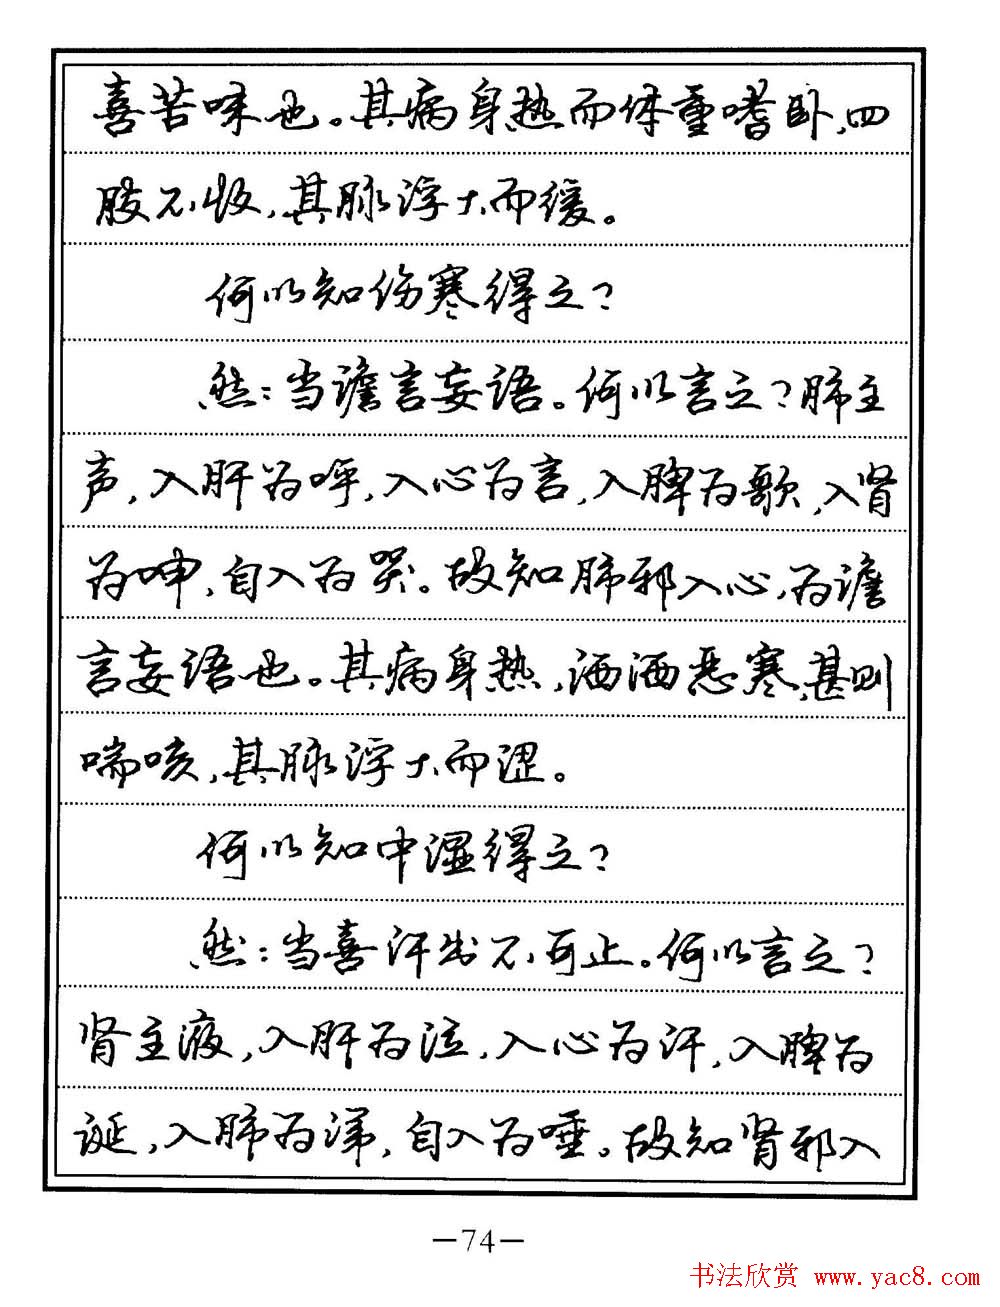 喜苦味也。其病身热而体重嗜卧,四
肢不收,其脉浮大而缓。
何以知伤寒得之?
然:当谵言妄语。何以言之?肺主
声,入肝为呼,入心为言,入脾为歌,入肾
为呻,自入为哭。故知肺邪入心,为谵
言妄语也。其病身热,洒洒恶寒,甚则
喘咳,其脉浮大而涩。
何以知中湿得之?
然:当喜汗出不可止。何以言之?
肾主液,入肝为泣,入心为汗,入脾为
诞,入肺为涕,自入为唾。故知肾邪入
—74—
书法欣赏 www.yac8.com